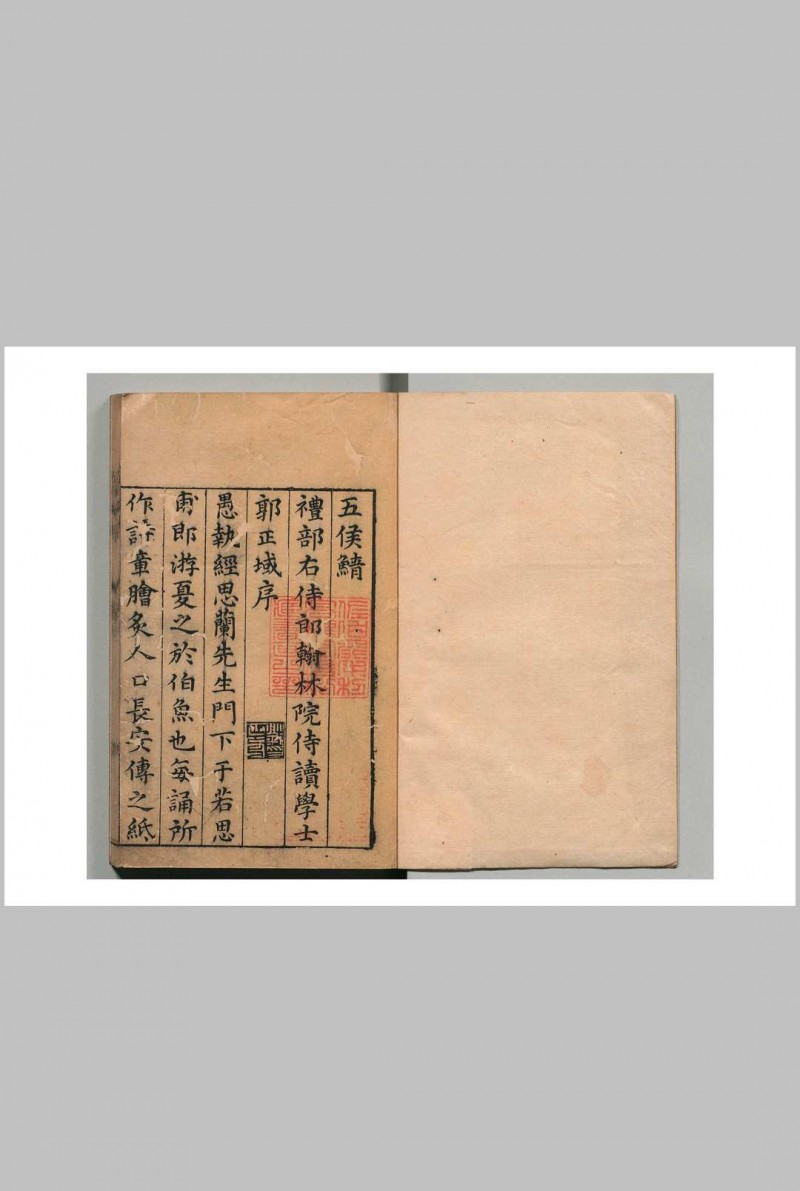 五侯鯖
禮部右侍郎翰林院侍讀學士
郭正域序
愚執經思蘭先生門下于若思
甫郎游夏之於伯魚也每誦所
作諸章膾炙人口長安傳之紙